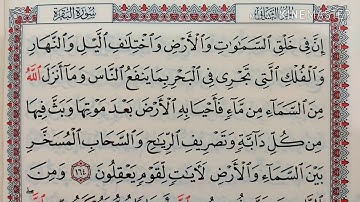 سورة البقرة
إِنَّ فِى خَلْقِ ٱلسَّمَٰوَٰتِ وَٱلْأَرْضِ وَٱخْتِلَٰفِ ٱلَّيْلِ وَٱلنَّهَارِ
وَٱلْفُلْكِ ٱلَّتِى تَجْرِى فِى ٱلْبَحْرِ بِمَا يَنفَعُ ٱلنَّاسَ وَمَآ أَنزَلَ ٱللَّهُ
مِنَ ٱلسَّمَآءِ مِن مَّآءٍ فَأَحْيَا بِهِ ٱلْأَرْضَ بَعْدَ مَوْتِهَا وَبَثَّ فِيهَا
مِن كُلِّ دَآبَّةٍ وَتَصْرِيفِ ٱلرِّيَٰحِ وَٱلسَّحَابِ ٱلْمُسَخَّرِ
بَيْنَ ٱلسَّمَآءِ وَٱلْأَرْضِ لَءَايَٰتٍ لِّقَوْمٍ يَعْقِلُونَ ١٦٤ وَمِنَ